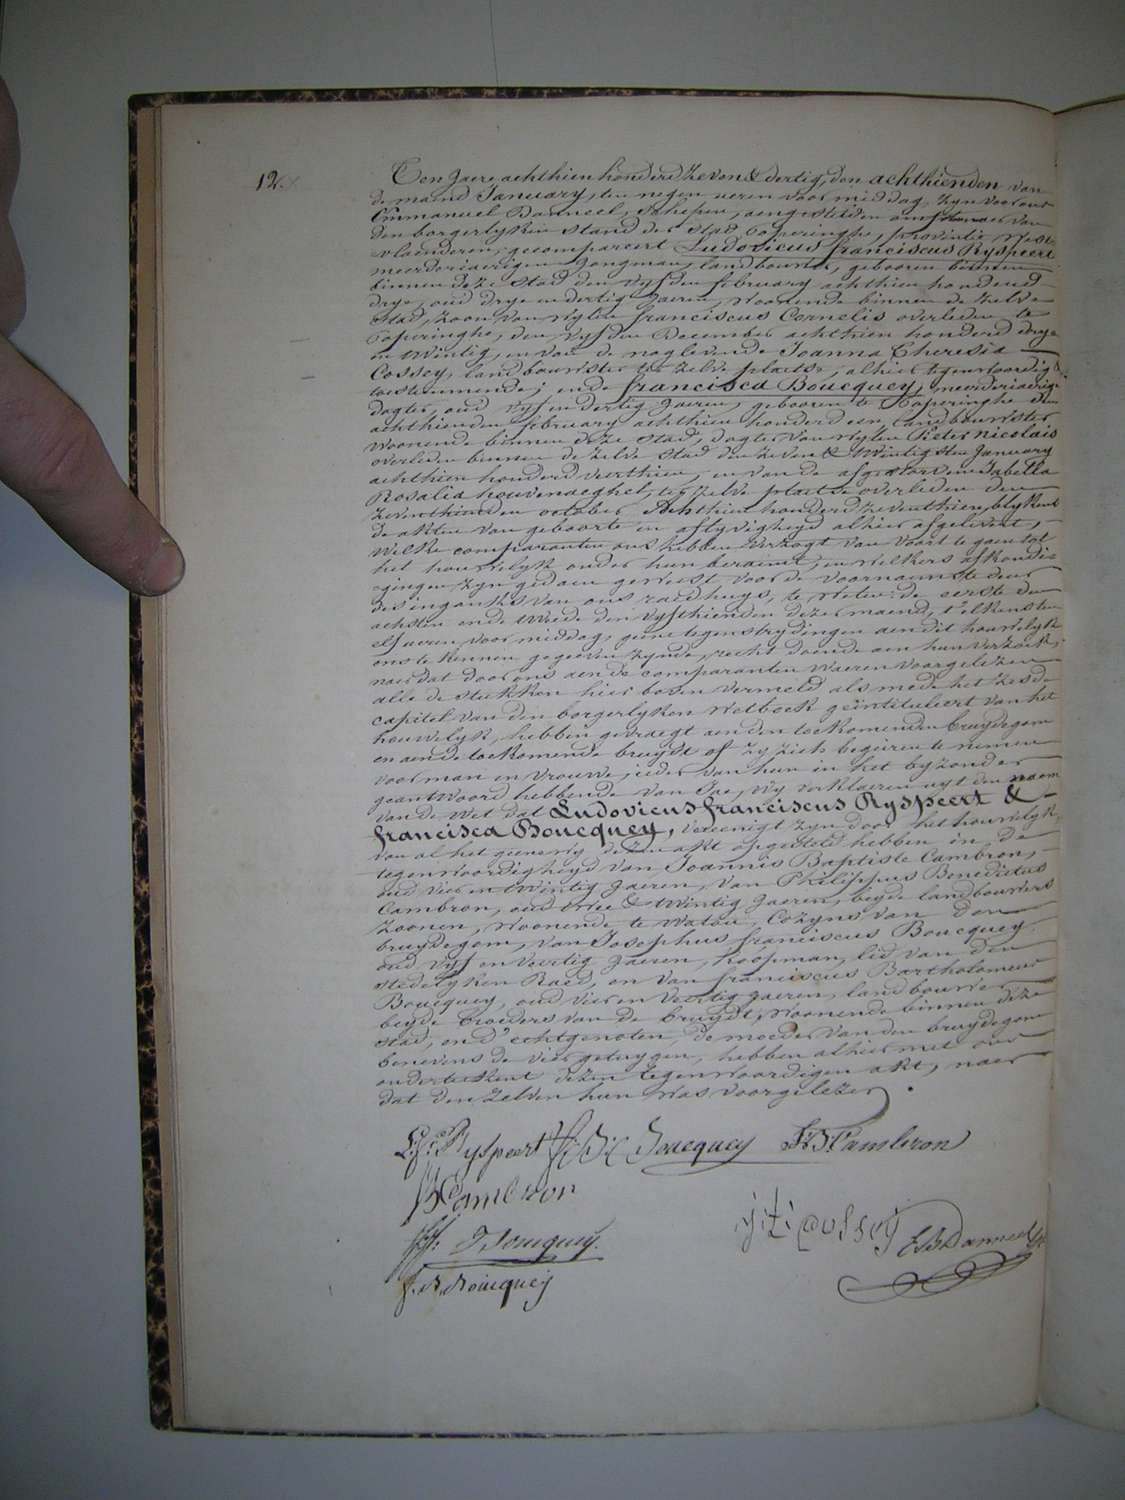 12.
Ten jaere achthien honderd zeven & dertig, den achthienden van
de maend January, ten negen ueren voor middag, zyn voor ons
Emmanuel Banneel, Schepen, aengestelden amptenaer van
den borgerlyken stand der stad Poperinghe, provintie West-
vlaenderen, gecompareert Ludovicus franciscus Ryspeert
meerderjaerigen jongman, landbouwer, gebooren binnen
binnen deze stad den vyfden february achthien honderd
drye, oud drye en dertig jaeren, woonende binnen de zelve
stad, zoon van wylen franciscus Cornelis overleden te
Poperinghe, den vyfden December achthien honderd drye
en twintig, en van de naglevende Joanna Theresia
Cossey, landbouwster ter zelve plaetse, alhier tegenwoordig &
toestemmende; ende francisca Boucquey, meerderjaerige
dogter, oud vyf en dertig jaeren, gebooren te Poperinghe den
achthienden february achthien honderd een, landbouwster
woonende binnen deze stad, dogter van wylen Pieter Nicolais
overleden binnen de zelve stad den zeven & twintigsten January
achthien honderd veerthien, en van de afgestorvene Isabella
Rosalia houvenaeghel, ter zelve plaetse overleden den
zeventhienden october Achthien honderd zeventhien, blykens
de akten van geboorte en aflyvigheyd alhier afgelevert,
Welke comparanten ons hebben verzogt van voort te gaen tot
het houwelyk onder hun beraemt, en welkers afkondi-
gingen zyn gedaen geweest voor de voornaemste deur
des ingangs van ons raedhuys, te weten: de eerste den
achsten ende tweede den vyfthienden dezer maend, t'elkens ten
elf ueren, voor middag, geene tegenstrydingen aen dit houwelyk
ons te kennen gegeven zynde, recht doende aen hun verzoek,
naer dat door ons aen de comparanten waeren voorgelezen
alle de stukken hier boven vermeld als mede het zesde
capitel van den borgerlyken Wetboek geïntituleert van het
houwelyk, hebben gevraegt aen den toekomenden bruydegom
en aen de toekomende bruydt of zy zich begeiren te nemen
voor man en vrouwe, ieder van hun in het byzonder
geantwoord hebbende van Jae, wy verklaeren uyt den naem
van de Wet dat Ludovicus franciscus Ryspeert &
francisca Boucquey, vereenigt zyn door het houwelyk,
van al het geene wy dezen akt opgesteld hebben in de
tegenwoordigheyd van Joannis Baptiste Cambron,
oud vier en twintig jaeren, van Philippus Benedictus
Cambron, oud twee & twintig jaeren, beyde landbouwers
zoonen, woonende te Watou, Cozyns van den
bruydegom, van Josephus franciscus Boucquey
oud vyf en veertig jaeren, koopman, lid van den
stedelyken Raed, en van franciscus Bartholomeus
Boucquey, oud vier en veertig jaeren, landbouwer
beyde broeders van de bruydt, woonende binnen deze
stad, en d'echtgenoten, de moeder van den bruydegom
benevens de vier getuygen, hebben alhier met ons
onderteekent dezen tegenwoordigen akt, naer
dat den zelven hun was voorgelezen.
Ryspeert Boucquey Cambron
Cambron
j: t: Cossey E Banneel
J Boucquey.
f. B. Boucquey